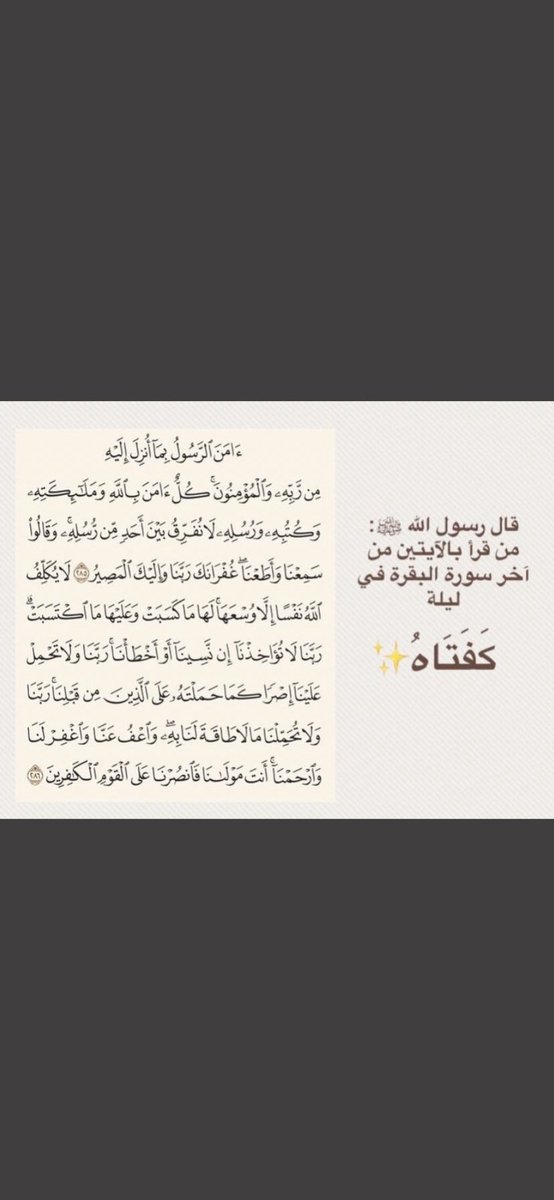 قال رسول الله ﷺ :
من قرأ بالآيتين من
آخر سورة البقرة في
ليلة
كَفَتَاهُ✨
ءَامَنَ ٱلرَّسُولُ بِمَآ أُنزِلَ إِلَيْهِ
مِن رَّبِّهِۦ وَٱلْمُؤْمِنُونَۚ كُلٌّ ءَامَنَ بِٱللَّهِ وَمَلَٰٓئِكَتِهِۦ
وَكُتُبِهِۦ وَرُسُلِهِۦ لَا نُفَرِّقُ بَيْنَ أَحَدٍ مِّن رُّسُلِهِۦۚ وَقَالُوا۟
سَمِعْنَا وَأَطَعْنَاۖ غُفْرَانَكَ رَبَّنَا وَإِلَيْكَ ٱلْمَصِيرُ ٢٨٥ لَا يُكَلِّفُ
ٱللَّهُ نَفْسًا إِلَّا وُسْعَهَاۚ لَهَا مَا كَسَبَتْ وَعَلَيْهَا مَا ٱكْتَسَبَتْۗ
رَبَّنَا لَا تُؤَاخِذْنَآ إِن نَّسِينَآ أَوْ أَخْطَأْنَاۚ رَبَّنَا وَلَا تَحْمِلْ
عَلَيْنَآ إِصْرًا كَمَا حَمَلْتَهُۥ عَلَى ٱلَّذِينَ مِن قَبْلِنَاۚ رَبَّنَا
وَلَا تُحَمِّلْنَا مَا لَا طَاقَةَ لَنَا بِهِۦۖ وَٱعْفُ عَنَّا وَٱغْفِرْ لَنَا
وَٱرْحَمْنَآۚ أَنتَ مَوْلَىٰنَا فَٱنصُرْنَا عَلَى ٱلْقَوْمِ ٱلْكَٰفِرِينَ ٢٨٦